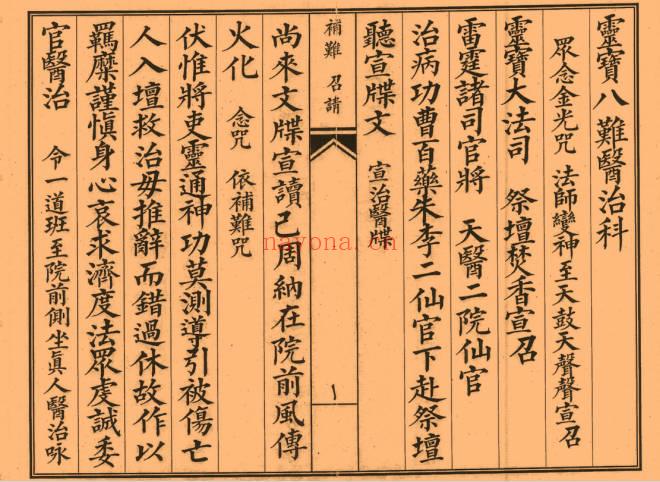 靈寶八難醫治科
眾念金光咒 法師變神至天鼓天聲聲宣召
靈寶大法司 祭壇焚香宣召
雷霆諸司官將 天醫二院仙官
治病功曹百藥朱李二仙官下赴祭壇
聽宣牒文 宣治醫牒
補難 召請
尚來文牒宣讀已周納在院前風傳
火化 念咒 依補難咒
伏惟將吏靈通神功莫測導引被傷亡
人入壇救治毋推辭而錯過休故作以
羈縻謹愼身心哀求濟度法眾虔誠委
官醫治 令一道班至院前側坐眞人醫治咏
nayona.cn